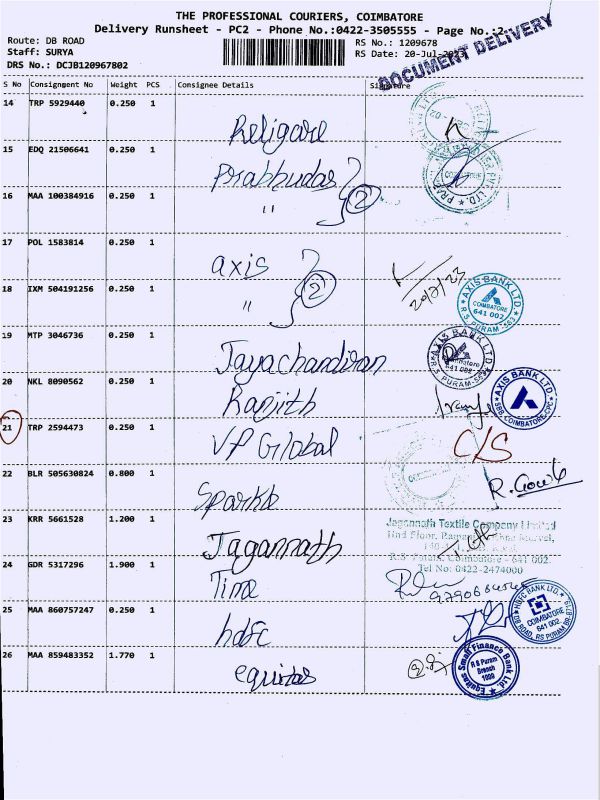 THE PROFESSIONAL COURIERS, COIMBATORE
Delivery Runsheet - PC2 - Phone No.:0422-3505555 - Page No.:2
Route: DB ROAD
RS No.: 1209678
Staff: SURYA
RS Date: 20-Jul-2023
DRS No.: DCJB120967802
DOCUMENT DELIVERY
S No Consignment No Weight PCS Consignee Details Signature
14 TRP 5929440 0.250 1
Religare
15 EDQ 21506641 0.250 1
Prabhudas
16 MAA 100384916 0.250 1
" 2
17 POL 1583814 0.250 1
axis
18 IXM 504191256 0.250 1
" 2
20/7/23
AXIS BANK LTD.
COIMBATORE
641 002
R S PURAM-563
19 MTP 3046736 0.250 1
Jayachandiran
20 NKL 8090562 0.250 1
Ranjith
AXIS BANK LTD.
SBB, COIMBATORE-CPC
21 TRP 2594473 0.250 1
VP Global
C/S
22 BLR 505630824 0.800 1
Sparkle
R. Gowk
23 KRR 5661528 1.200 1
Jagannath
Jagannath Textile Company Limited
R.S. Puram, Coimbatore - 641 002.
Tel No: 0422-2474000
24 GDR 5317296 1.900 1
Time
25 MAA 860757247 0.250 1
hdfc
HDFC BANK LTD.
COIMBATORE
641 002.
26 MAA 859483352 1.770 1
equitas
Equitas Small Finance Bank Ltd.
R S Puram
Branch
1009